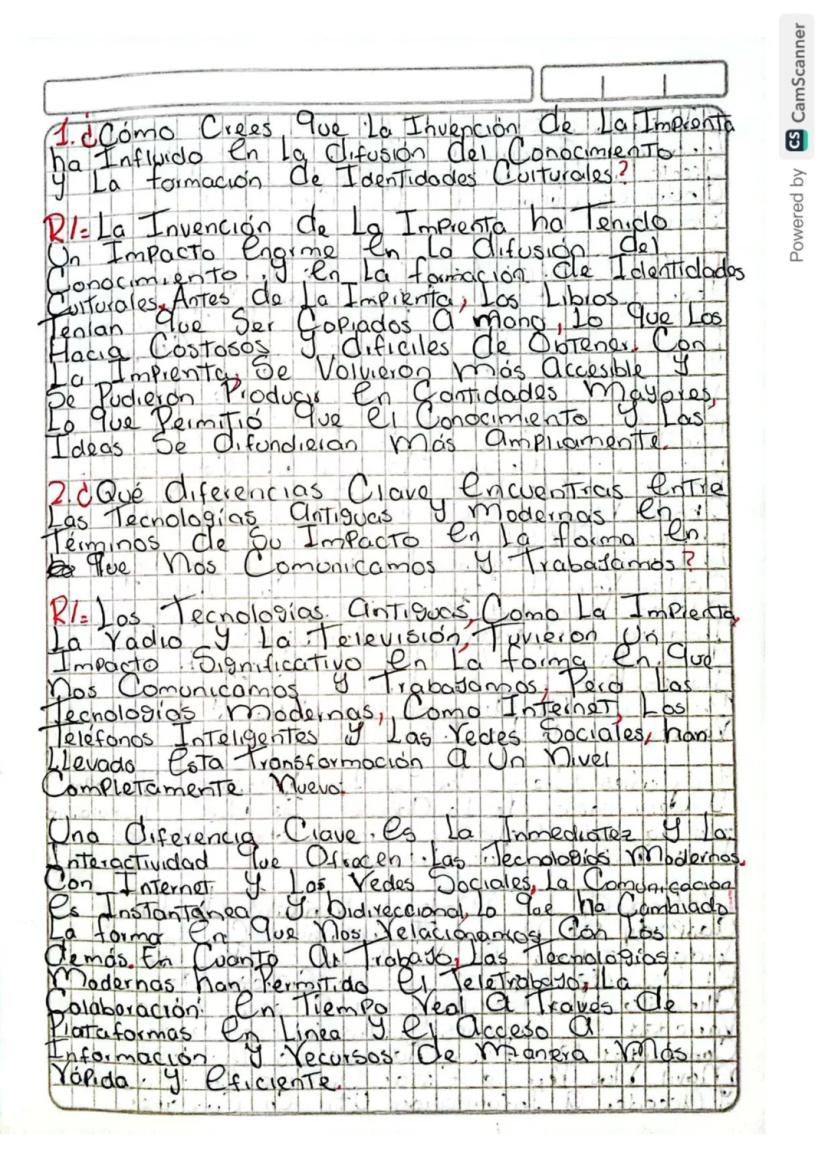 1. ¿Cómo Crees Que La Invención de La Imprenta
ha Influido en La difusión del Conocimiento
y La formación de Identidades Culturales?
R/= La Invención de La Imprenta ha Tenido
Un Impacto enorme en La difusión del
Conocimiento y en La formación de Identidades
Culturales. Antes de La Imprenta, Los Libros
Tenían que Ser Copiados a mano, Lo que Los
Hacía Costosos y difíciles de Obtener. Con
La Imprenta, Se Volvieron más Accesible y
Se Pudieron Producir en Cantidades Mayores,
Lo que Permitió que el Conocimiento y Las
Ideas Se difundieran más ampliamente.
2. ¿Qué diferencias Clave encuentras entre
Las Tecnologías antiguas y modernas en
Términos de Su Impacto en La forma en
que nos Comunicamos y Trabajamos?
R/= Las Tecnologías antiguas, Como La Imprenta,
La radio y La Televisión, Tuvieron Un
Impacto Significativo en La forma en que
nos Comunicamos y Trabajamos, Pero Las
Tecnologías modernas, Como Internet, Los
Teléfonos Inteligentes y Las redes Sociales, han
Llevado esta Transformación a Un Nivel
Completamente Nuevo.
Una diferencia Clave es La Inmediatez y La
Interactividad que Ofrecen Las Tecnologías Modernas.
Con Internet y Las redes Sociales, La Comunicación
es Instantánea y bidireccional, Lo que ha Cambiado
La forma en que nos relacionamos Con Los
demás. En Cuanto al Trabajo, Las Tecnologías
Modernas han Permitido el Teletrabajo, La
Colaboración en Tiempo real a Través de
Plataformas en Línea y el acceso a
Información y recursos de manera más
rápida y eficiente.
Powered by CS CamScanner